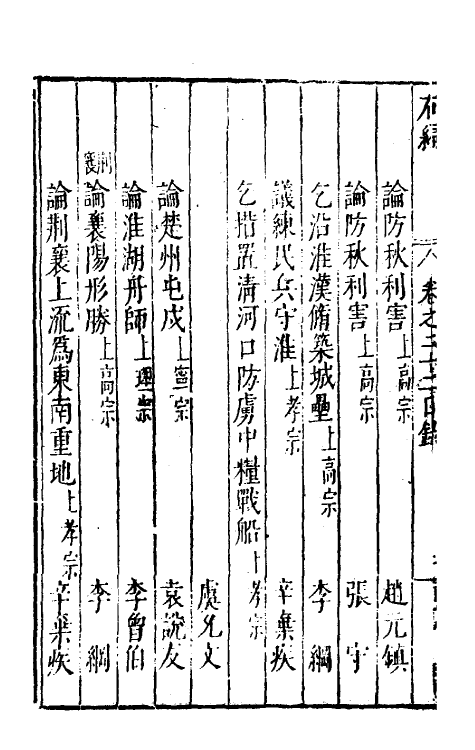 右編 卷之二十二目錄
論防秋利害上高宗 趙元鎮
論防秋利害上高宗 張守
乞沿淮漢脩築城壘上高宗 李綱
議練民兵守淮上孝宗 辛棄疾
乞措置清河口防虜中糧戰船上孝宗
虞允文
論楚州屯戍上寧宗 袁說友
論淮湖舟師上理宗 李曾伯
荆襄
論襄陽形勝上高宗 李綱
論荆襄上流爲東南重地上孝宗 辛棄疾